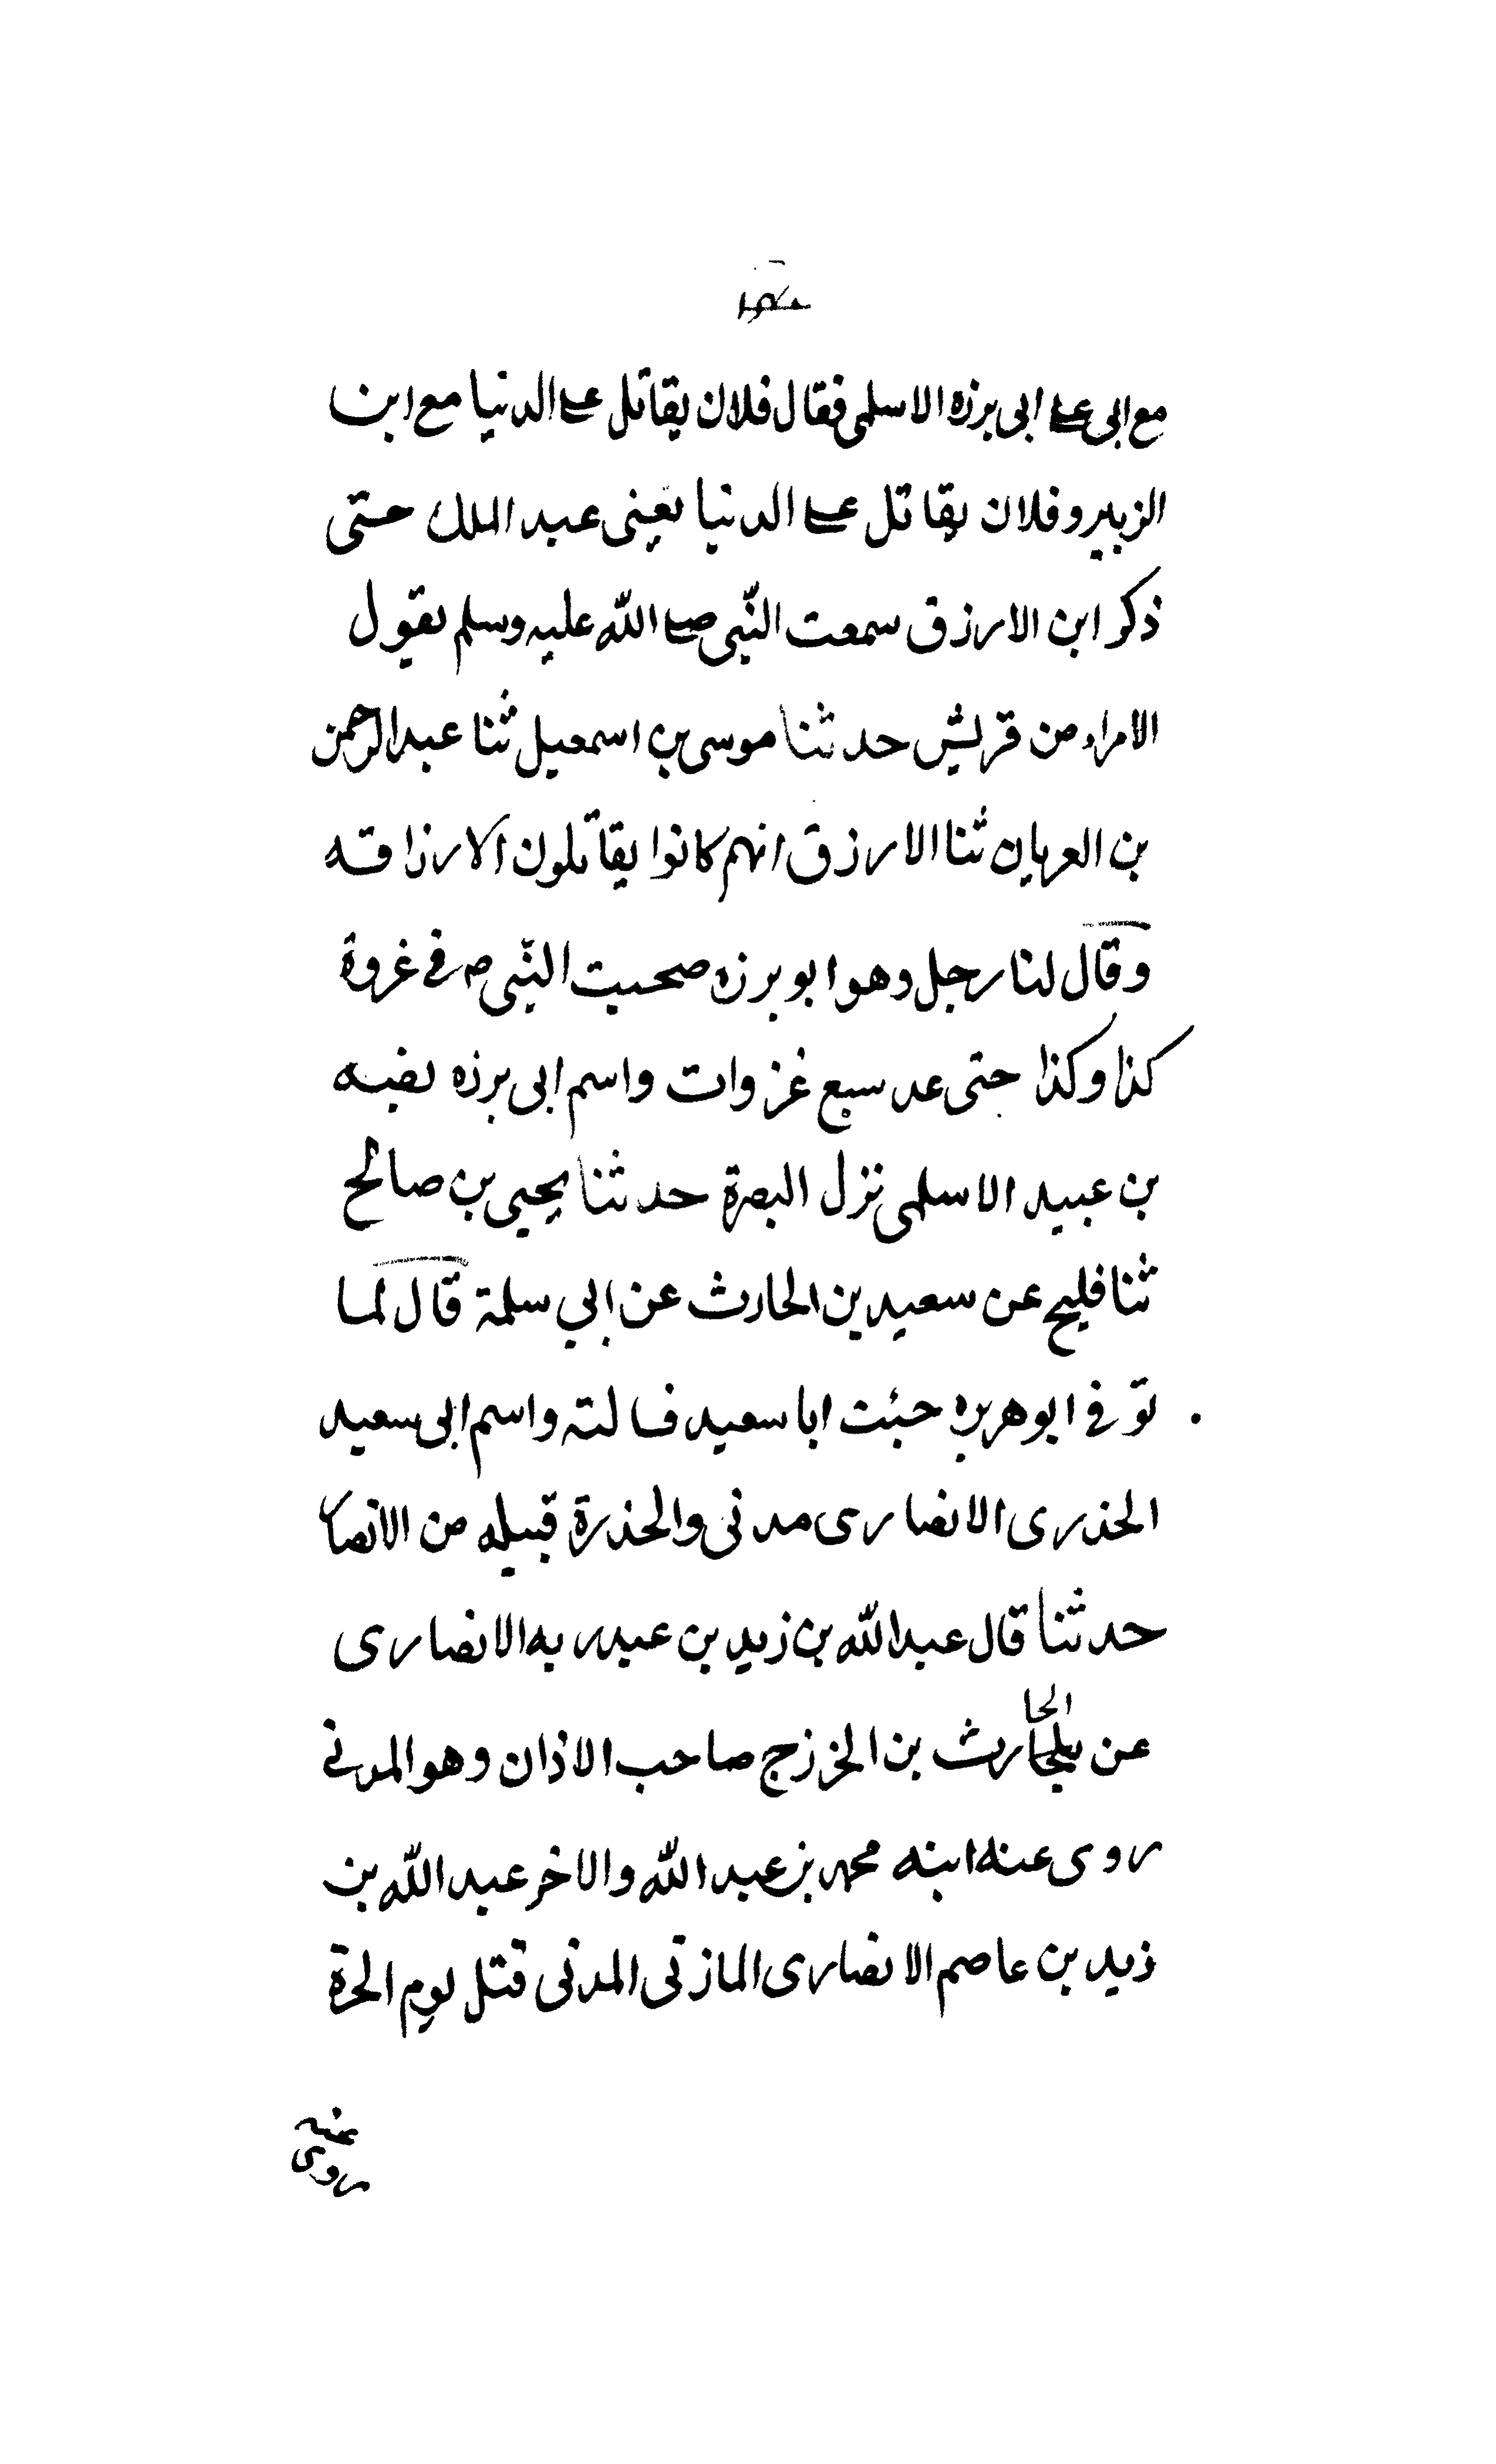 مع ابى على ابى برزه الاسلمى فقال فلان يقاتل على الدنيا مع ابن
الزبير و فلان يقاتل على الدنيا يعنى عبد الملك حتى
ذكر ابن الارزق سمعت النّبى صلى اللّه عليه وسلم يقول
الامراء من قريش حدثنا موسى بن اسمعيل ثنا عبد الرحمن
بن العريان ثنا الارزق انهم كانوا يقاتلون الازارقه
وقال لنا رجل وهو ابو برزه صحبت النّبى ص فى غزوة
كذا وكذا حتى عد سبع غزوات واسم ابى برزه نضبه
بن عبيد الاسلمى نزل البصرة حدثنا يحيى بن صالح
ثنا فليح عن سعيد بن الحارث عن ابي سلمة قال لما
توفى ابو هريره جئت ابا سعيد فسالته واسم ابى سعيد
الخذرى الانصارى مدنى والخذرة قبيله من الانصار
حدثنا قال عبد اللّه بن زيد بن عبد ربه الانصارى
الحا
عن بلحارث بن الخزرج صاحب الاذان وهو المدنى
روى عنه ابنه محمد بن عبد اللّه والاخر عبد اللّه بن
زيد بن عاصم الانصارى المازنى المدنى قتل يوم الحرة
روى عنه